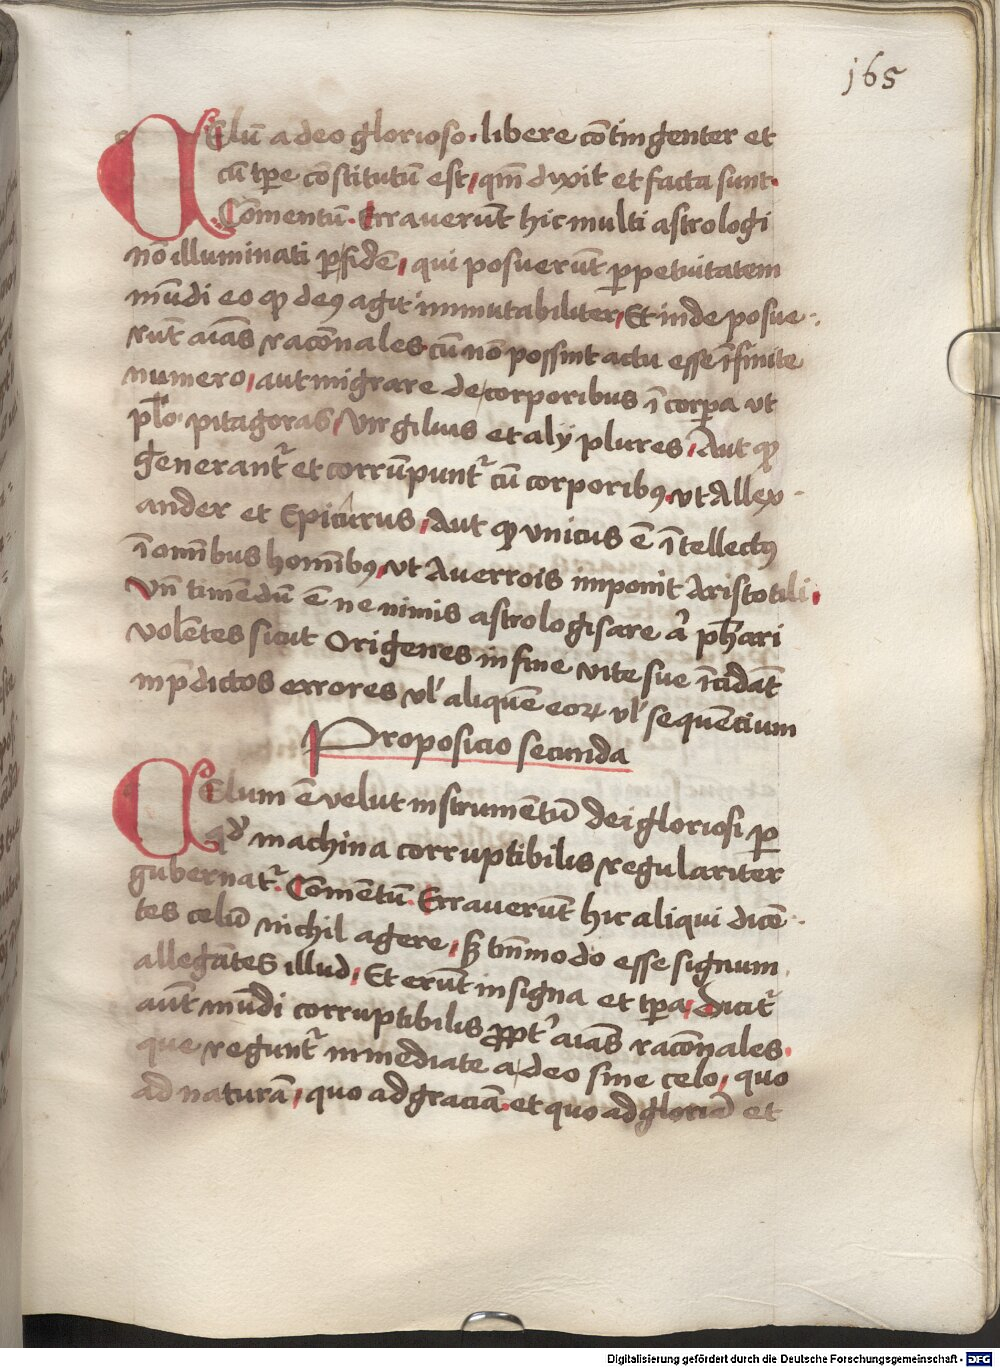 165
Celū a deo glorioso. libere cōtingenter et
cū tꝑe cōstitutū est, qm̄ dixit et facta sunt.
Cōmentū. Erraverūt hic multi astrologi
nō illuminati ꝑ fidē, qui posuerūt ꝑpetuitatem
mūdi eo ꝙ deꝰ agit inmutabiliter, Et inde posue
rūt aīas racōnales cū nō possint actu esse īfinite
numero, aut migrare de corporibus ī corꝑa ut
pl̄o. pitagoras, Virgilius et alij plures, Aut ꝙ
generant᷑ et corrūpunt᷑ cū corporibꝫ, ut Allex
ander et Epicurus, Aut ꝙ unicus ē ītellectꝰ
ī om̄ibus hom̄ibꝫ, ut Averrois imponit Aristotili,
Vn̄ timēdū ē ne nimis astrologisare a᷑ ph̄ari
volētes sicut Origenes in fine vite sue īcidāt
in p̄dictos errores vl᷑ aliquē eoꝝ vl᷑ sequēcium
Proposicio secunda
Celum ē velut instrumētū dei gloriosi ꝑ
qd᷑ machina corruptibilis regulariter
gubernat᷑. Cōmētū. Erraverūt hic aliqui dicē
tes celū nichil agere, sꝫ tm̄modo esse signum,
allegātes illud, Et erūt in signa et tꝑa, dicit᷑
aūt mūdi corruptibilis ꝓpt᷑ aīas racōnales.
que regunt᷑ inmediate a deo sine celo, quo
ad naturā, quo ad graciā. et quo ad gloriā et
Digitalisierung gefördert durch die Deutsche Forschungsgemeinschaft - DFG